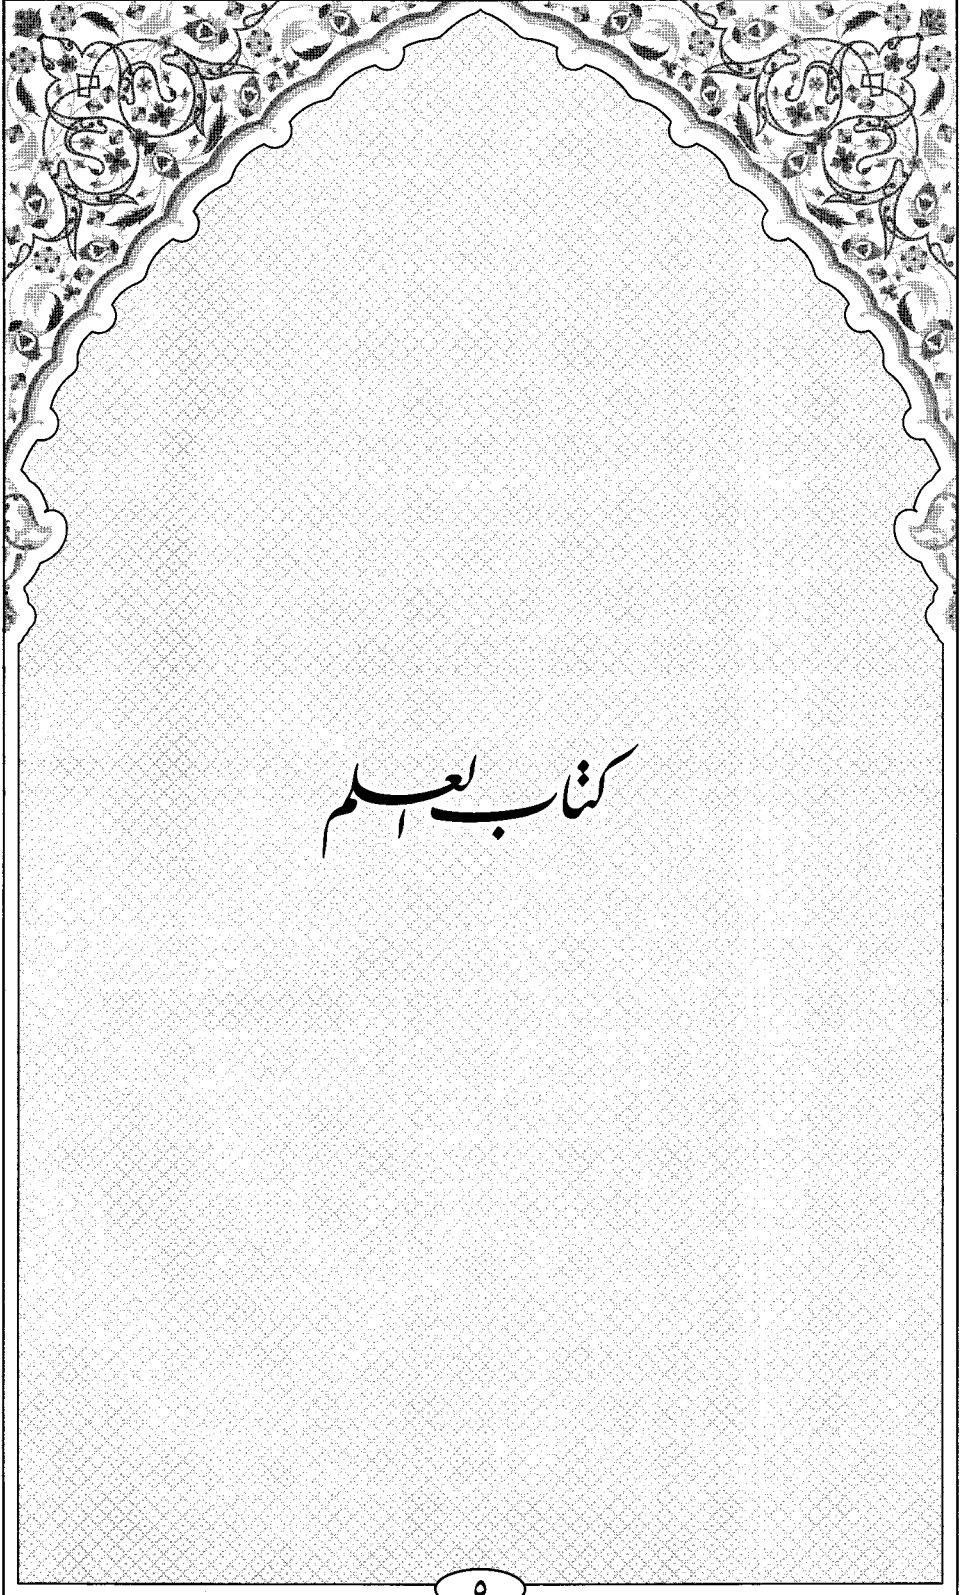 كتاب العلم
٥